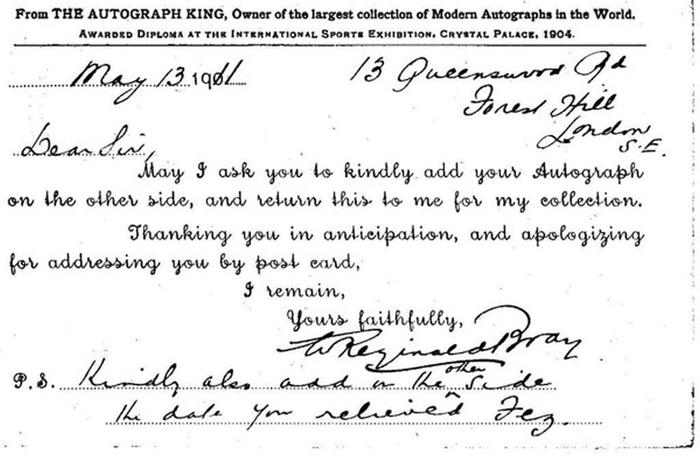 From THE AUTOGRAPH KING, Owner of the largest collection of Modern Autographs in the World.
AWARDED DIPLOMA AT THE INTERNATIONAL SPORTS EXHIBITION, CRYSTAL PALACE, 1904.
May 13 1911
13 Queenswood Rd
Forest Hill
London
S.E.
Dear Sir,
May I ask you to kindly add your Autograph
on the other side, and return this to me for my collection.
Thanking you in anticipation, and apologizing
for addressing you by post card,
I remain,
Yours faithfully,
W Reginald Bray
P.S. Kindly also add on the other side
the date you relieved Fez.